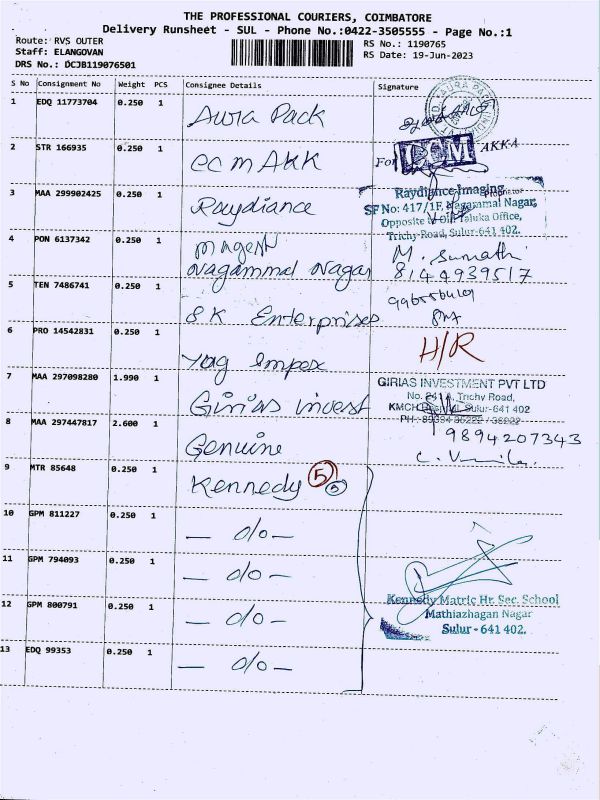 THE PROFESSIONAL COURIERS, COIMBATORE
Delivery Runsheet - SUL - Phone No.:0422-3505555 - Page No.:1
Route: RVS OUTER
RS No.: 1190765
Staff: ELANGOVAN
RS Date: 19-Jun-2023
DRS No.: DCJB119076501
S No Consignment No Weight PCS Consignee Details Signature
1 EDQ 11773704 0.250 1 Aura Pack
2 STR 166935 0.250 1 ecm AKK
For ECM AKKA
3 MAA 299902425 0.250 1 Raydiance
Raydiance Imaging
SF No: 417/1F, Nagammal Nagar,
Opposite to Old Taluka Office,
Trichy-Road, Sulur-641 402.
4 PON 6137342 0.250 1 magesh
Nagammal Nagar
M. Sumathi
8144939517
5 TEN 7486741 0.250 1 SK Enterprises
6 PRO 14542831 0.250 1 Yag Impex
H/R
7 MAA 297098280 1.990 1 Girias invest
GIRIAS INVESTMENT PVT LTD
No. 241A, Trichy Road,
KMCH Hospital, Sulur-641 402
8 MAA 297447817 2.600 1 Genuine
9894207343
9 MTR 85648 0.250 1 Kennedy 5 5
10 GPM 811227 0.250 1 — do —
11 GPM 794093 0.250 1 — do —
12 GPM 800791 0.250 1 — do —
Kennedy Matric Hr. Sec. School
Mathiazhagan Nagar
Sulur - 641 402.
13 EDQ 99353 0.250 1 — do —